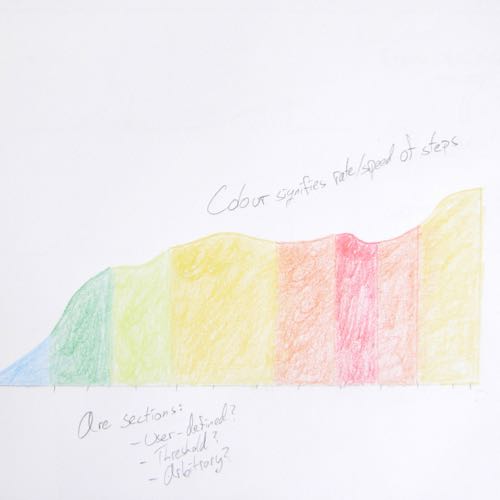 Colour signifies rate/speed of steps
Are sections:
- User-defined?
- Threshold?
- Arbitrary?